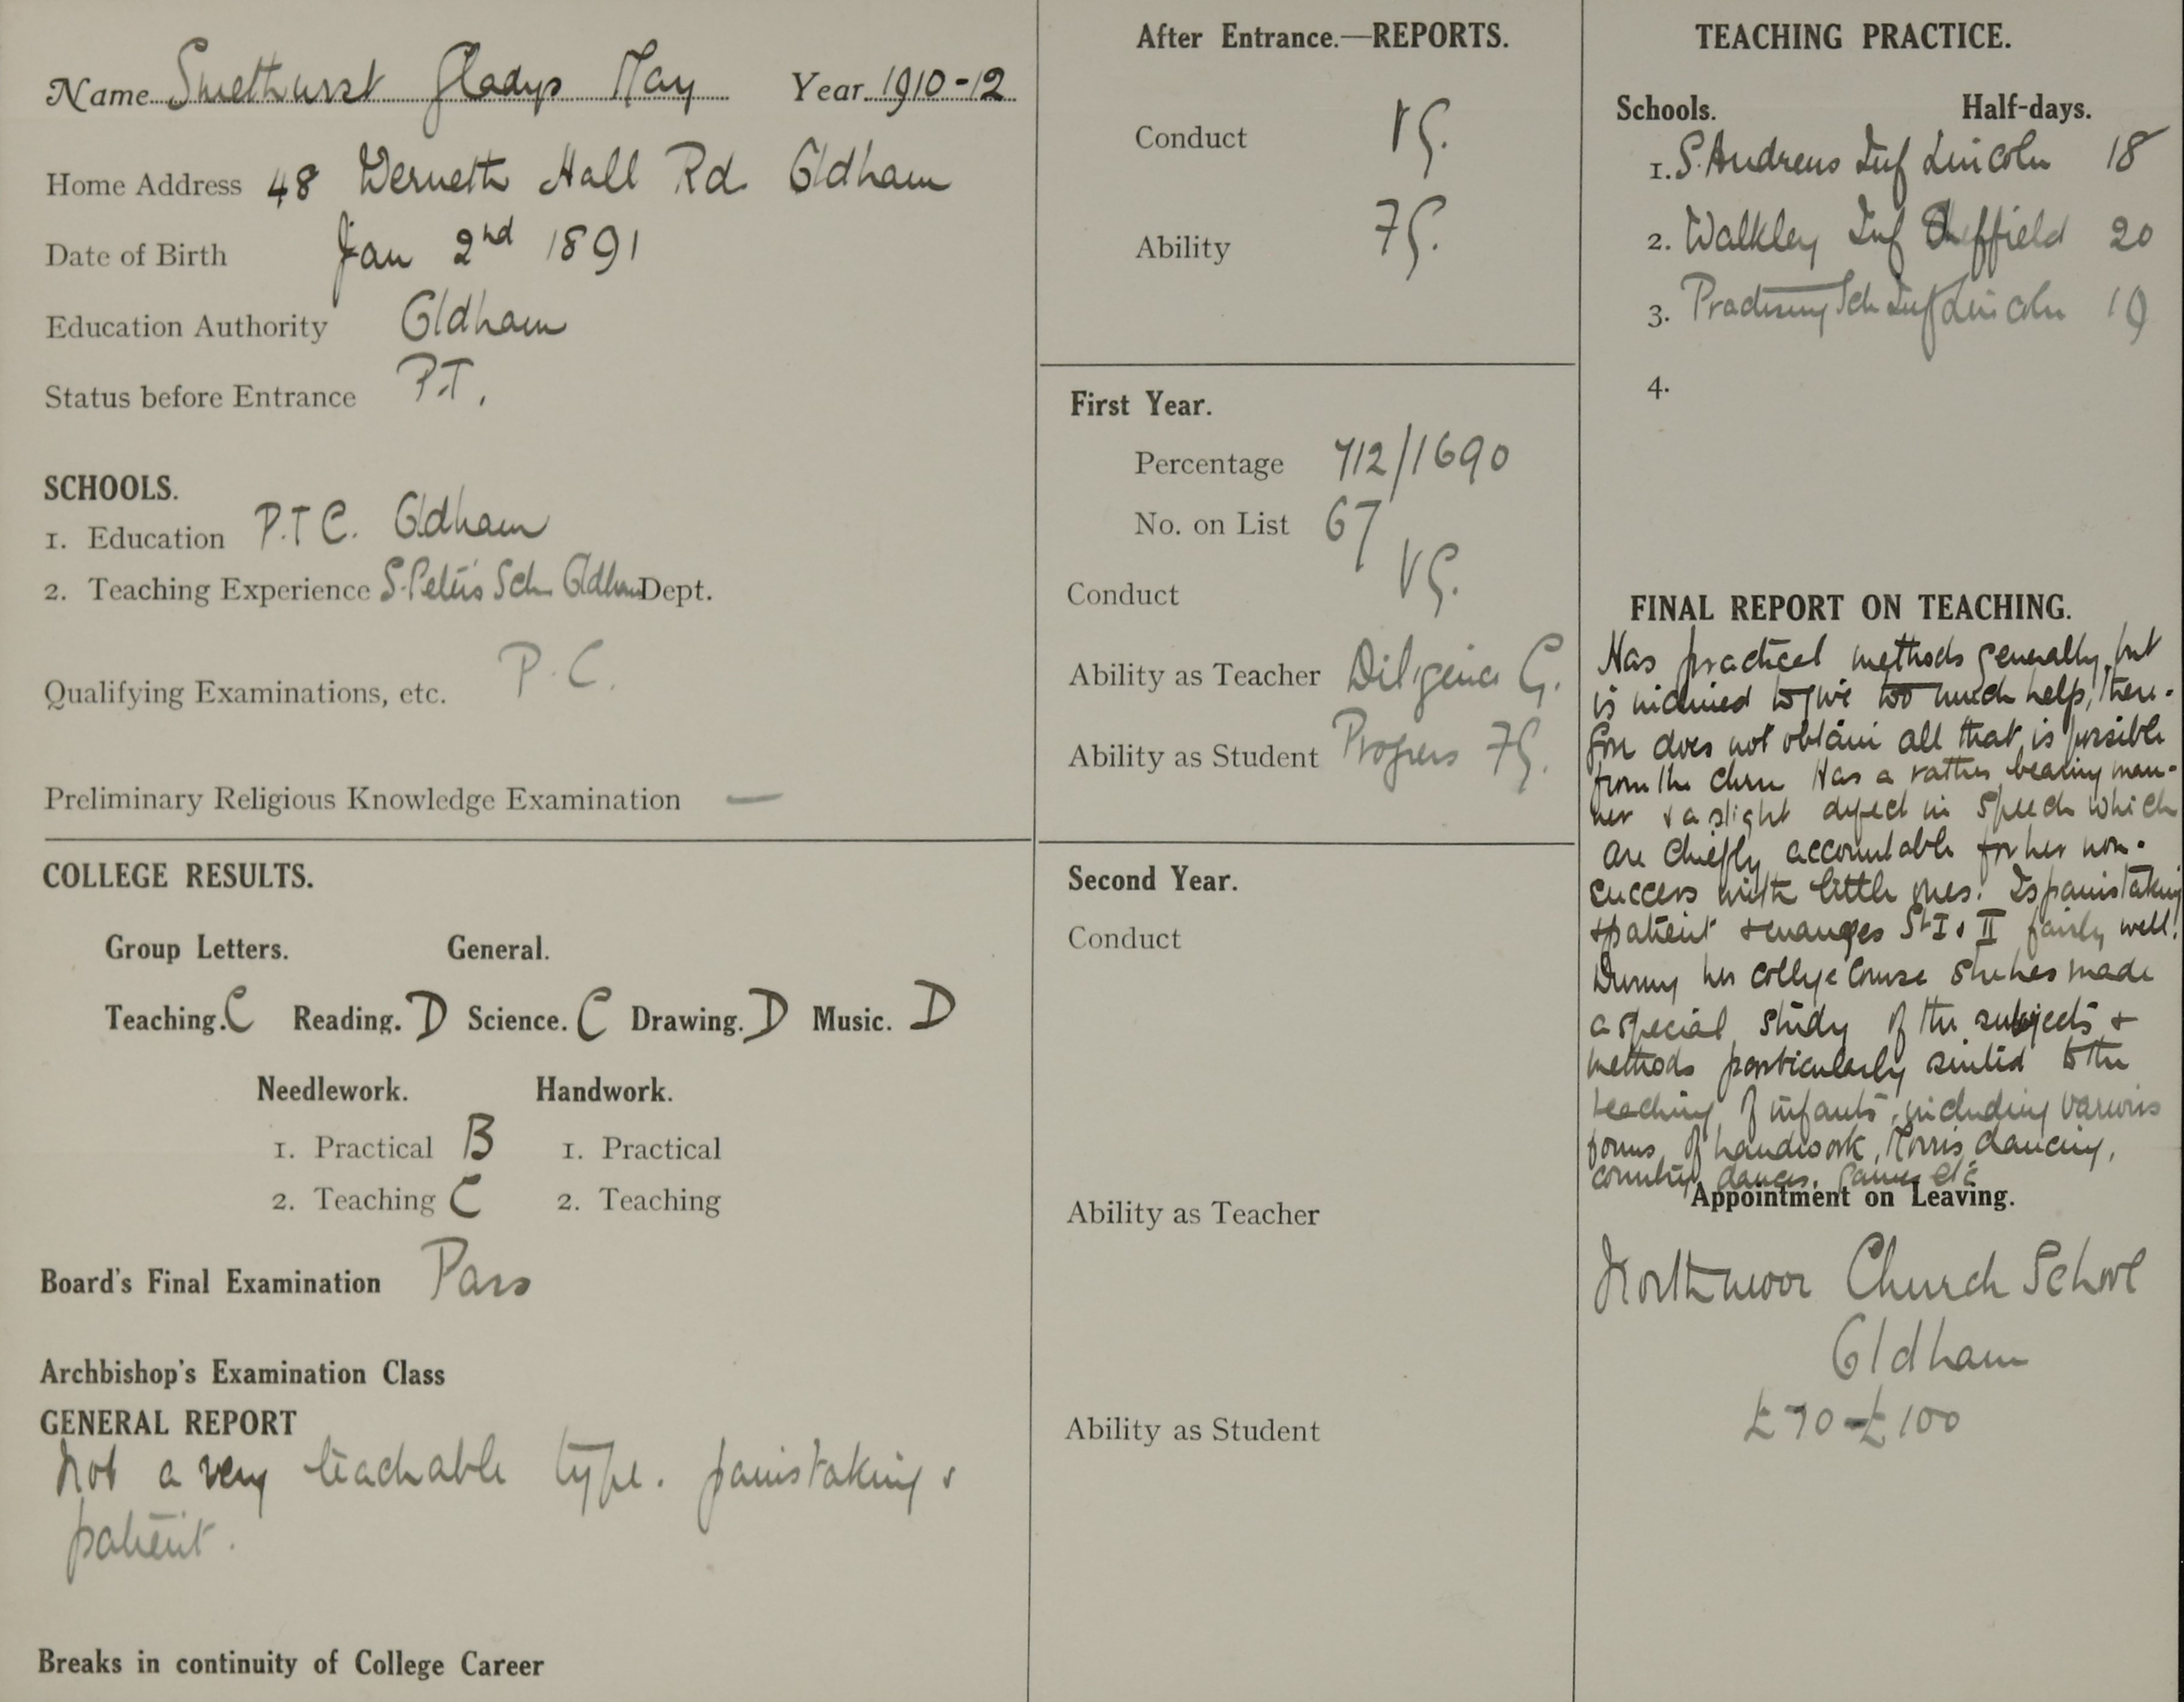 Name Smethurst Gladys May Year 1910-12
Home Address 48 Werneth Hall Rd Oldham
Date of Birth Jan 2nd 1891
Education Authority Oldham
Status before Entrance P.T.
SCHOOLS.
1. Education P.T.C. Oldham
2. Teaching Experience S. Peter's Sch Oldham Dept.
Qualifying Examinations, etc. P.C.
Preliminary Religious Knowledge Examination —
COLLEGE RESULTS.
Group Letters. General.
Teaching. C Reading. D Science. C Drawing. D Music. D
Needlework. Handwork.
1. Practical B 1. Practical
2. Teaching C 2. Teaching
Board's Final Examination Pass
Archbishop's Examination Class
GENERAL REPORT
Not a very teachable type. painstaking &
patient.
Breaks in continuity of College Career
After Entrance.—REPORTS.
Conduct VG.
Ability FG.
First Year.
Percentage 712/1690
No. on List 67
Conduct VG.
Ability as Teacher Diligence G.
Ability as Student Progress FG.
Second Year.
Conduct
Ability as Teacher
Ability as Student
TEACHING PRACTICE.
Schools. Half-days.
1. S. Andrews Inf Lincoln 18
2. Walkley Inf Sheffield 20
3. Practising Sch Inf Lincoln 19
4.
FINAL REPORT ON TEACHING.
Has practical methods generally, but
is inclined to give too much help, there-
fore does not obtain all that is possible
from the chn Has a rather man-
ner & a slight defect in speech which
are chiefly accountable for her non-
success with little ones. Is painstaking
& patient & manages St I & II fairly well.
During her college course she has made
a special study of the subjects &
methods particularly suited to the
teaching of infants, including various
forms of handwork, Morris dancing,
country dances, games etc
Appointment on Leaving.
Northmoor Church School
Oldham
£70-£100